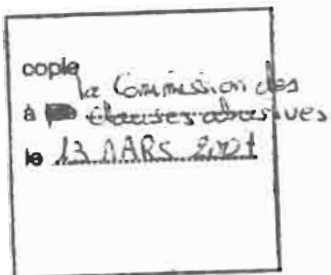 copie
à la Commission des
clauses abusives
le 13 MARS 2001